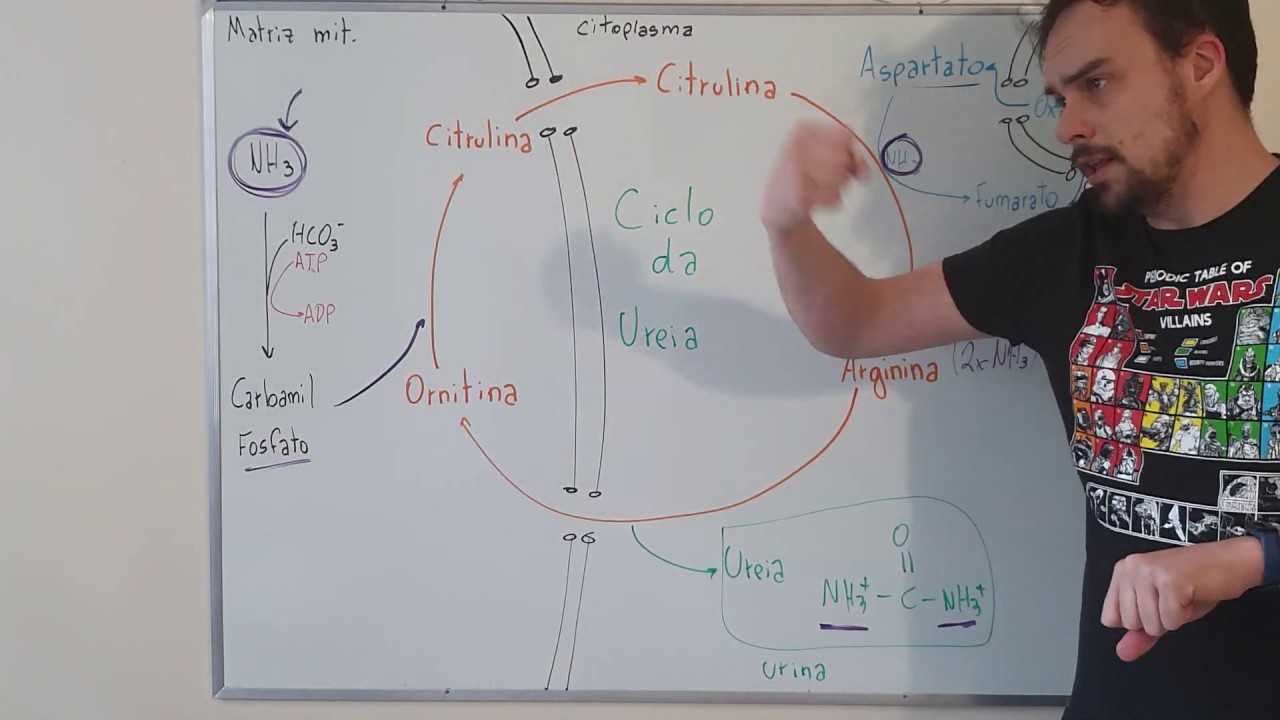 Matriz mit.
citoplasma
Citrulina
Aspartato
Citrulina
NH3
Fumarato
HCO3-
ATP
ADP
Ciclo
da
Ureia
Carbamil
Fosfato
Ornitina
Arginina (2xNH3)
Ureia
O
||
NH3+ - C - NH3+
urina
PERIODIC TABLE OF
STAR WARS
VILLAINS